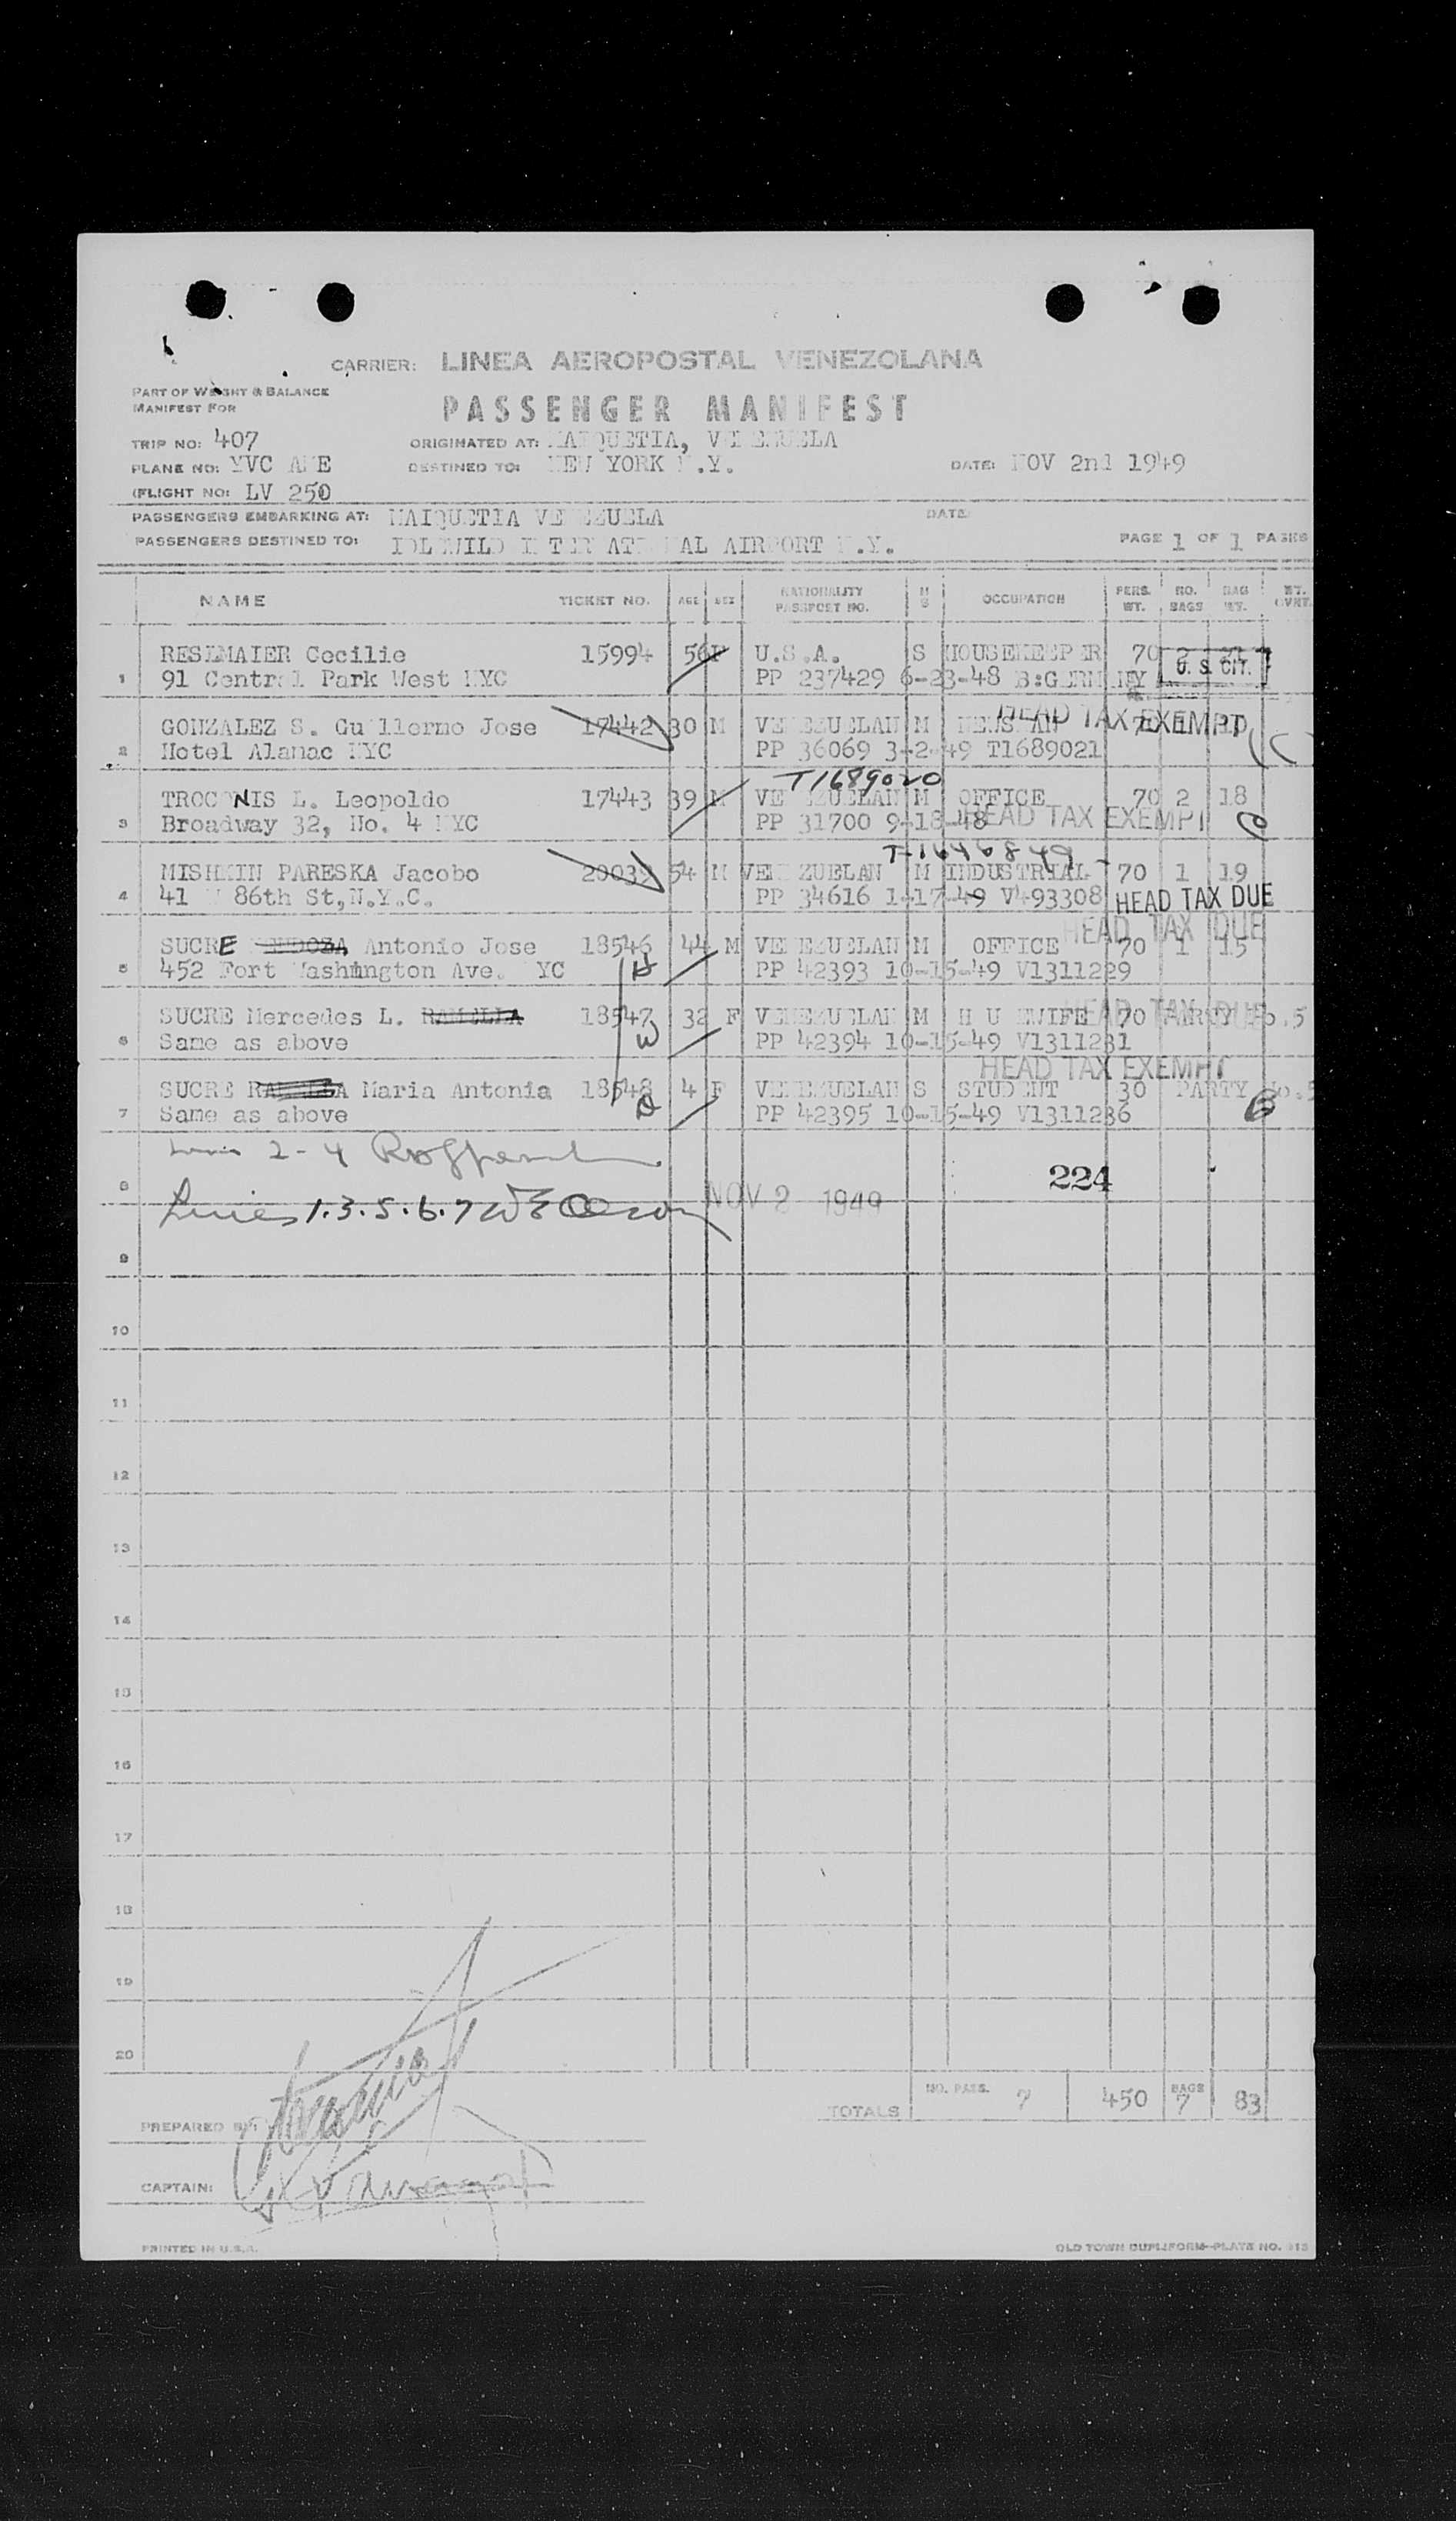 CARRIER: LINEA AEROPOSTAL VENEZOLANA
PART OF WEIGHT & BALANCE
MANIFEST FOR
PASSENGER MANIFEST
TRIP NO: 407 ORIGINATED AT: MAIQUETIA, VENEZUELA
PLANE NO: YVC AME DESTINED TO: NEW YORK N.Y. DATE: NOV 2nd 1949
(FLIGHT NO: LV 250
PASSENGERS EMBARKING AT: MAIQUETIA VENEZUELA DATE:
PASSENGERS DESTINED TO: IDLEWILD INTERNATIONAL AIRPORT N.Y. PAGE 1 OF 1 PAGES
NAME TICKET NO. AGE SEX NATIONALITY PASSPORT NO. M S OCCUPATION PERS. WT. NO. BAGS BAG WT. WT. OVRT.
RESLMAIER Cecilie 15994 56 F U.S.A. S HOUSEKEEPER 70 2
1 91 Central Park West NYC PP 237429 6-23-48 B:GERMANY U. S. CIT.
HEAD TAX EXEMPT
GONZALEZ S. Guillermo Jose 17442 30 M VENEZUELAN M 70 1
2 Hotel Alamac NYC PP 36069 3-2-49 T1689021
T1689020
TROCONIS L. Leopoldo 17443 39 M VENEZUELAN M OFFICE 70 2 18
3 Broadway 32, No. 4 NYC PP 31700 9-18-48 HEAD TAX EXEMPT
T-1646849
MISHKIN PARESKA Jacobo 20039 54 M VENEZUELAN M INDUSTRIAL 70 1 19
4 41 W 86th St,N.Y.C. PP 34616 1-17-49 V493308 HEAD TAX DUE
HEAD TAX DUE
SUCRE MENDOZA Antonio Jose 18546 44 M VENEZUELAN M OFFICE 70 1 15
5 452 Fort Washington Ave. NYC H PP 42393 10-15-49 V1311229
HEAD TAX DUE
SUCRE Mercedes L. RAMELLA 18547 32 F VENEZUELAN M HOUSEWIFE 70 PARTY No.5
6 Same as above W PP 42394 10-15-49 V1311231
HEAD TAX EXEMPT
SUCRE RAMELLA Maria Antonia 18548 4 F VENEZUELAN S STUDENT 30 PARTY No.5
7 Same as above D PP 42395 10-15-49 V1311236
2-4
224
8
Lines 1.3.5.6.7 NOV 2 1949
9
10
11
12
13
14
15
16
17
18
19
20
TOTALS NO. PASS. 7 450 BAGS 7 83
PREPARED BY:
CAPTAIN:
PRINTED IN U.S.A. OLD TOWN DUPLIFORM-PLATE NO. 313